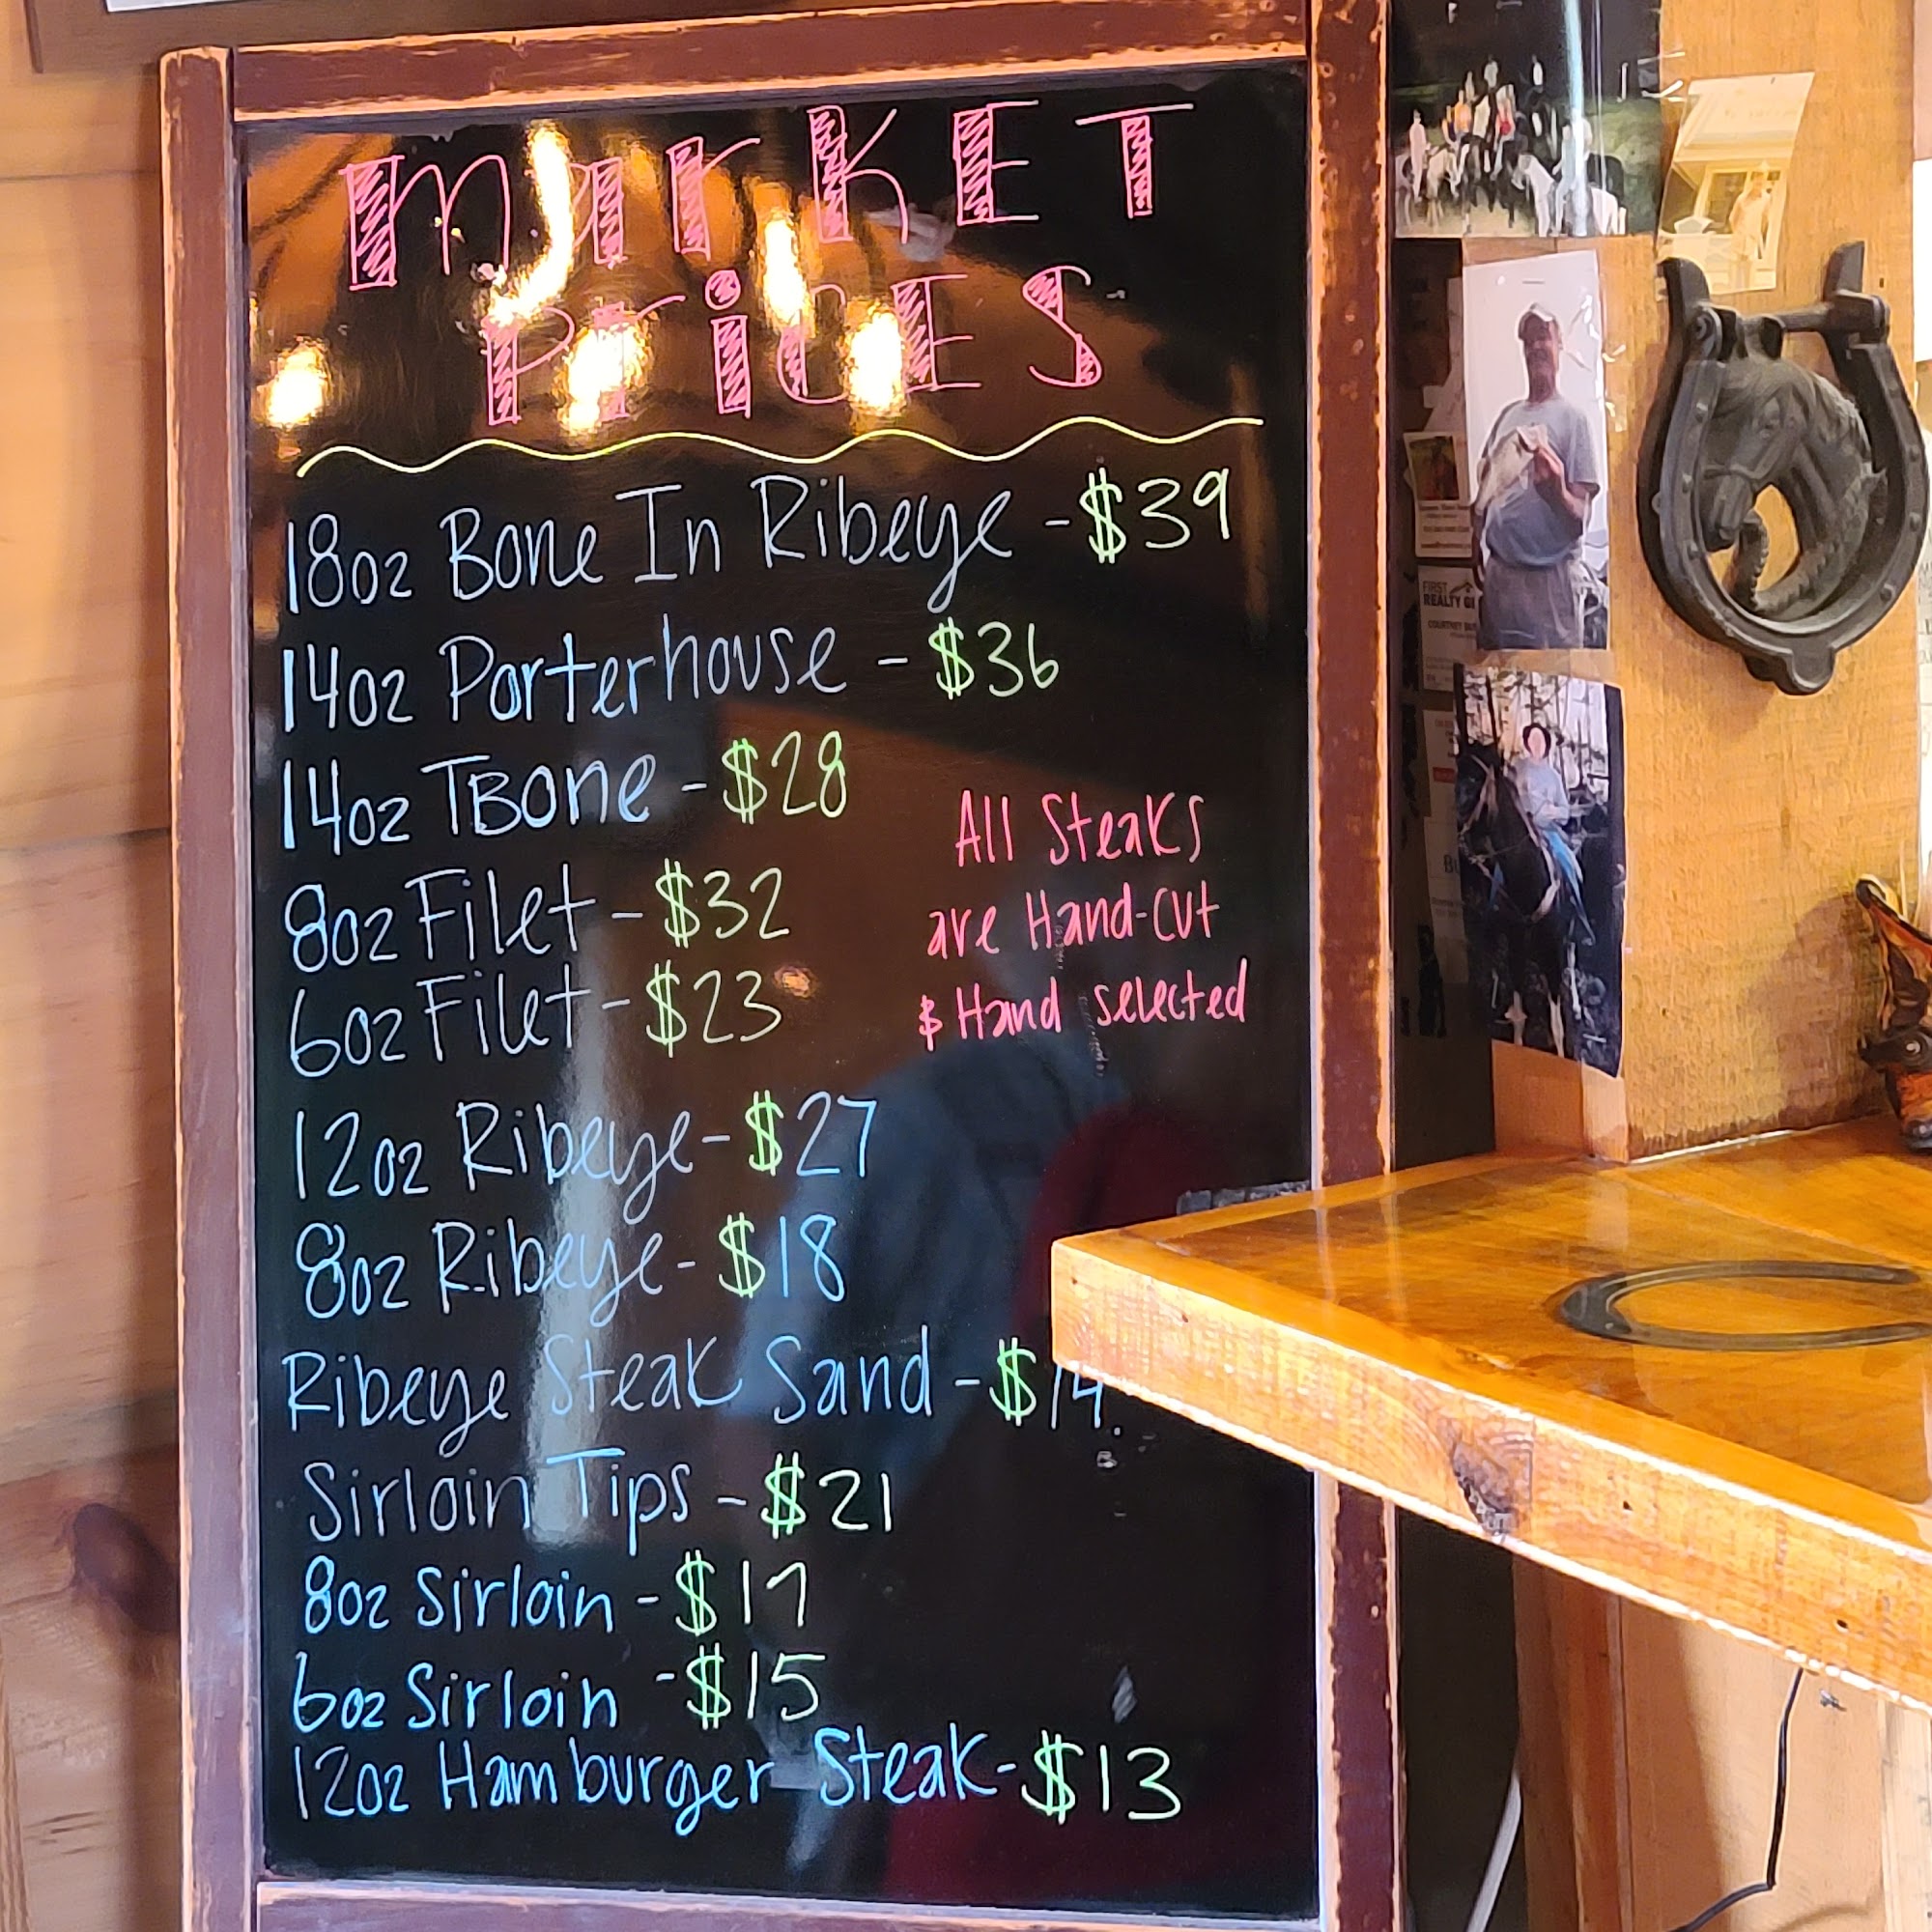 Market
Prices
18oz Bone In Ribeye - $39
14oz Porterhouse - $36
14oz TBone - $28
8oz Filet - $32
6oz Filet - $23
All Steaks
are Hand-cut
& Hand selected
12oz Ribeye - $27
8oz Ribeye - $18
Ribeye Steak Sand - $14.
Sirloin Tips - $21
8oz Sirloin - $17
6oz Sirloin - $15
12oz Hamburger Steak - $13
FIRST
REALTY
COURTNEY